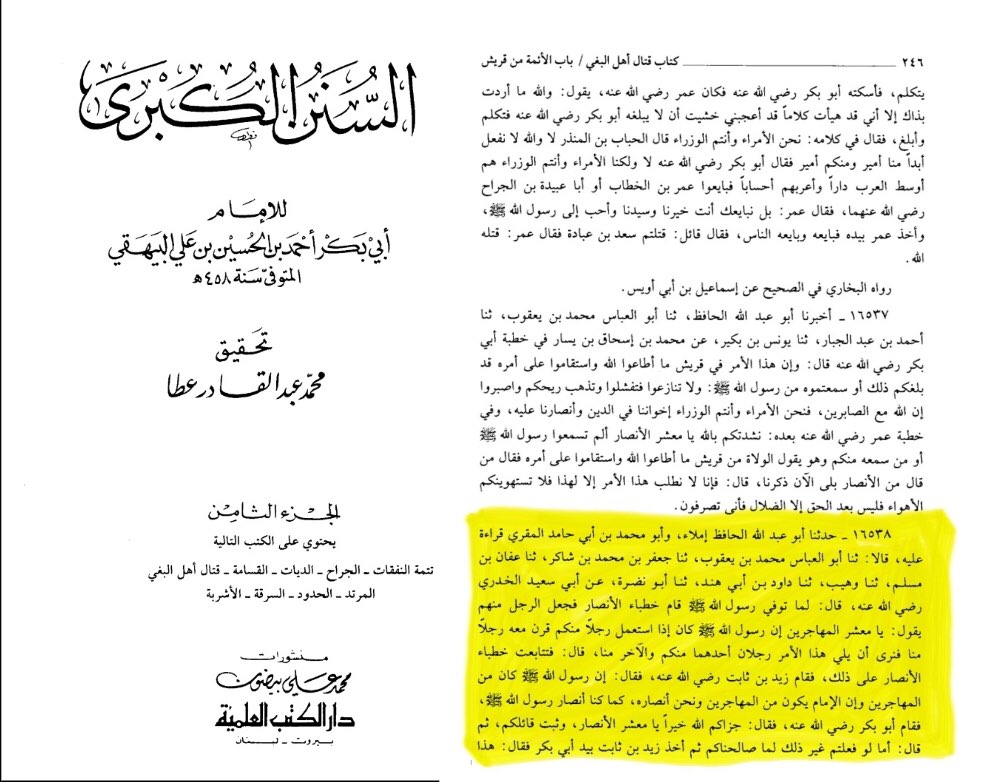 السنن الكبرى
للإمام
أبي بكر أحمد بن الحسين بن علي البيهقي
المتوفى سنة ٤٥٨ هـ
تحقيق
محمد عبد القادر عطا
الجزء الثامن
يحتوي على الكتب التالية
تتمة النفقات - الجراح - الديات - القسامة - قتال أهل البغي
المرتد - الحدود - السرقة - الأشربة
منشورات
محمد علي بيضون
دار الكتب العلمية
بيروت - لبنان
٢٤٦ كتاب قتال أهل البغي / باب الأئمة من قريش
يتكلم، فأسكته أبو بكر رضي الله عنه فكان عمر رضي الله عنه، يقول: والله ما أردت
بذاك إلا أني قد هيأت كلاماً قد أعجبني خشيت أن لا يبلغه أبو بكر رضي الله عنه فتكلم
وأبلغ، فقال في كلامه: نحن الأمراء وأنتم الوزراء قال الحباب بن المنذر لا والله لا نفعل
أبداً منا أمير ومنكم أمير فقال أبو بكر رضي الله عنه لا ولكنا الأمراء وأنتم الوزراء هم
أوسط العرب داراً وأعربهم أحساباً فبايعوا عمر بن الخطاب أو أبا عبيدة بن الجراح
رضي الله عنهما، فقال عمر: بل نبايعك أنت خيرنا وسيدنا وأحب إلى رسول الله ﷺ،
وأخذ عمر بيده فبايعه وبايعه الناس، فقال قائل: قتلتم سعد بن عبادة فقال عمر: قتله
الله.
رواه البخاري في الصحيح عن إسماعيل بن أبي أويس.
١٦٥٣٧ ـ أخبرنا أبو عبد الله الحافظ، ثنا أبو العباس محمد بن يعقوب، ثنا
أحمد بن عبد الجبار، ثنا يونس بن بكير، عن محمد بن إسحاق بن يسار في خطبة أبي
بكر رضي الله عنه قال: وإن هذا الأمر في قريش ما أطاعوا الله واستقاموا على أمره قد
بلغكم ذلك أو سمعتموه من رسول الله ﷺ: ولا تنازعوا فتفشلوا وتذهب ريحكم واصبروا
إن الله مع الصابرين، فنحن الأمراء وأنتم الوزراء إخواننا في الدين وأنصارنا عليه، وفي
خطبة عمر رضي الله عنه بعده: نشدتكم بالله يا معشر الأنصار ألم تسمعوا رسول الله ﷺ
أو من سمعه منكم وهو يقول الولاة من قريش ما أطاعوا الله واستقاموا على أمره فقال من
قال من الأنصار بلى الآن ذكرنا، قال: فإنا لا نطلب هذا الأمر إلا لهذا فلا تستهوينكم
الأهواء فليس بعد الحق إلا الضلال فأنى تصرفون.
١٦٥٣٨ ـ حدثنا أبو عبد الله الحافظ إملاء، وأبو محمد بن أبي حامد المقري قراءة
عليه، قالا: ثنا أبو العباس محمد بن يعقوب، ثنا جعفر بن محمد بن شاكر، ثنا عفان بن
مسلم، ثنا وهيب، ثنا داود بن أبي هند، ثنا أبو نضرة، عن أبي سعيد الخدري
رضي الله عنه، قال: لما توفي رسول الله ﷺ قام خطباء الأنصار فجعل الرجل منهم
يقول: يا معشر المهاجرين إن رسول الله ﷺ كان إذا استعمل رجلاً منكم قرن معه رجلاً
منا فنرى أن يلي هذا الأمر رجلان أحدهما منكم والآخر منا، قال: فتتابعت خطباء
الأنصار على ذلك، فقام زيد بن ثابت رضي الله عنه، فقال: إن رسول الله ﷺ كان من
المهاجرين وإن الإمام يكون من المهاجرين ونحن أنصاره، كما كنا أنصار رسول الله ﷺ،
فقام أبو بكر رضي الله عنه، فقال: جزاكم الله خيراً يا معشر الأنصار، وثبت قائلكم، ثم
قال: أما لو فعلتم غير ذلك لما صالحناكم ثم أخذ زيد بن ثابت بيد أبي بكر فقال: هذا